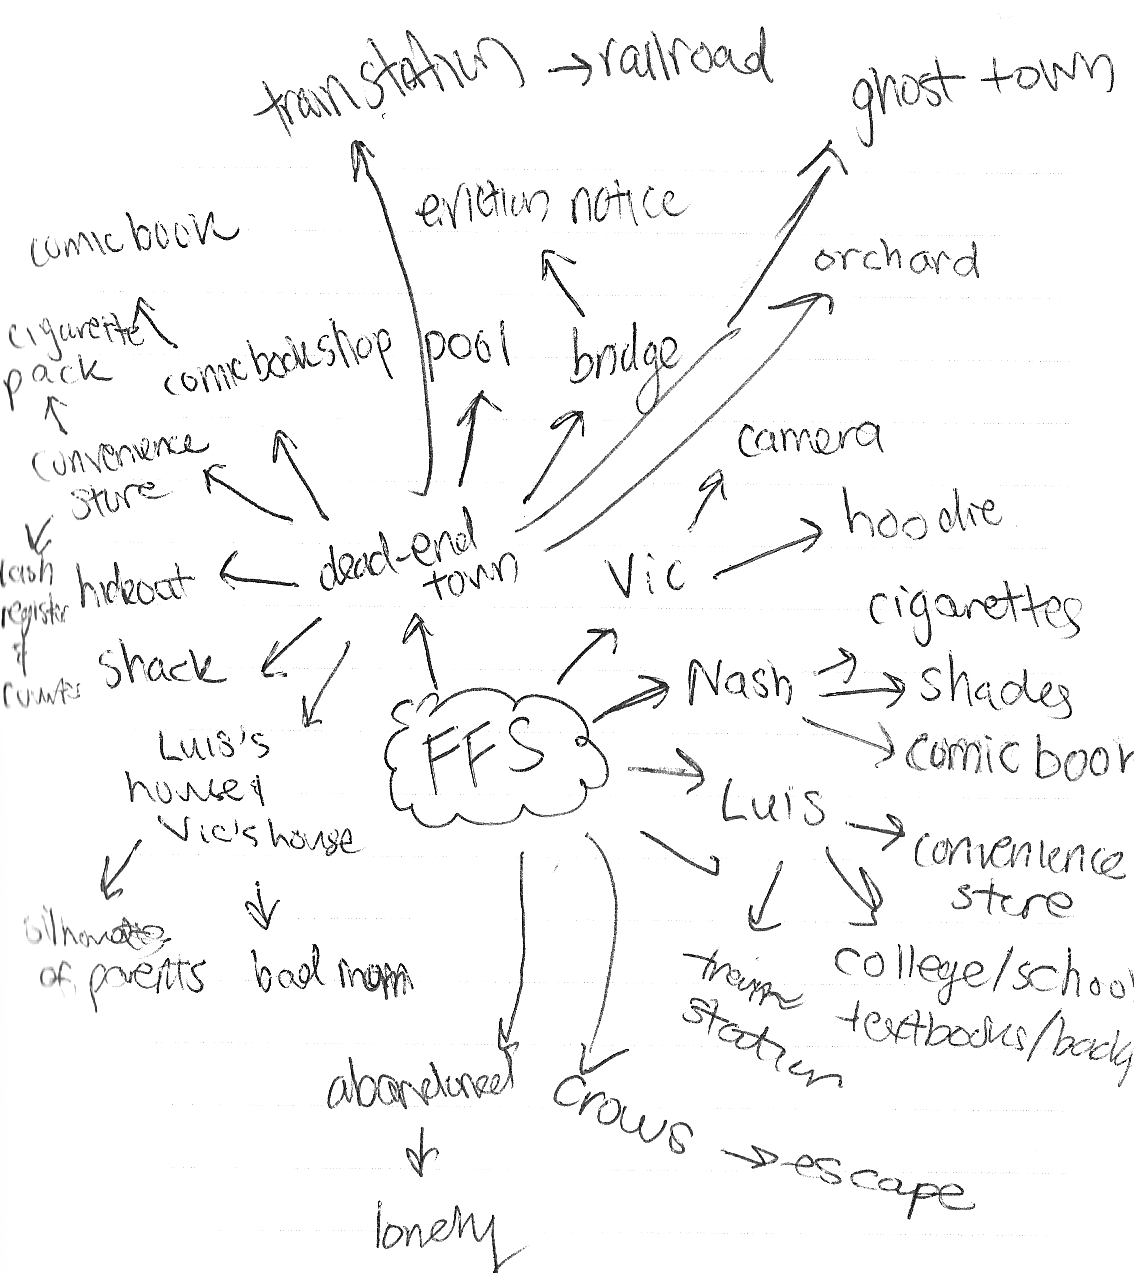 train station → railroad
ghost town
eviction notice
comic book
orchard
cigarette
pack
comic book shop
pool
bridge
camera
convenience
store
hoodie
dead-end
town
Vic
cash
register
&
hideout
cigarettes
shack
Nash
shades
comic book
Luis's
house &
Vic's house
FFS
Luis
convenience
store
silhouettes
of parents
bad mom
train
station
college/school
textbooks/
abandoned
crows → escape
lonely